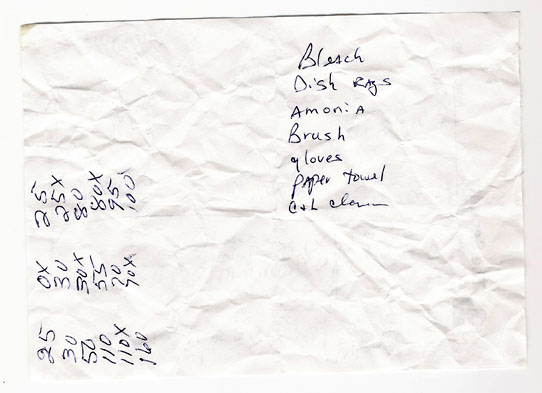 Bleach
Dish RAgs
AmoniA
Brush
gloves
PAper towel
25 0x 25
30 30 25x
50 30x 80
110 55 80x
110x 70 95
160 70x 100